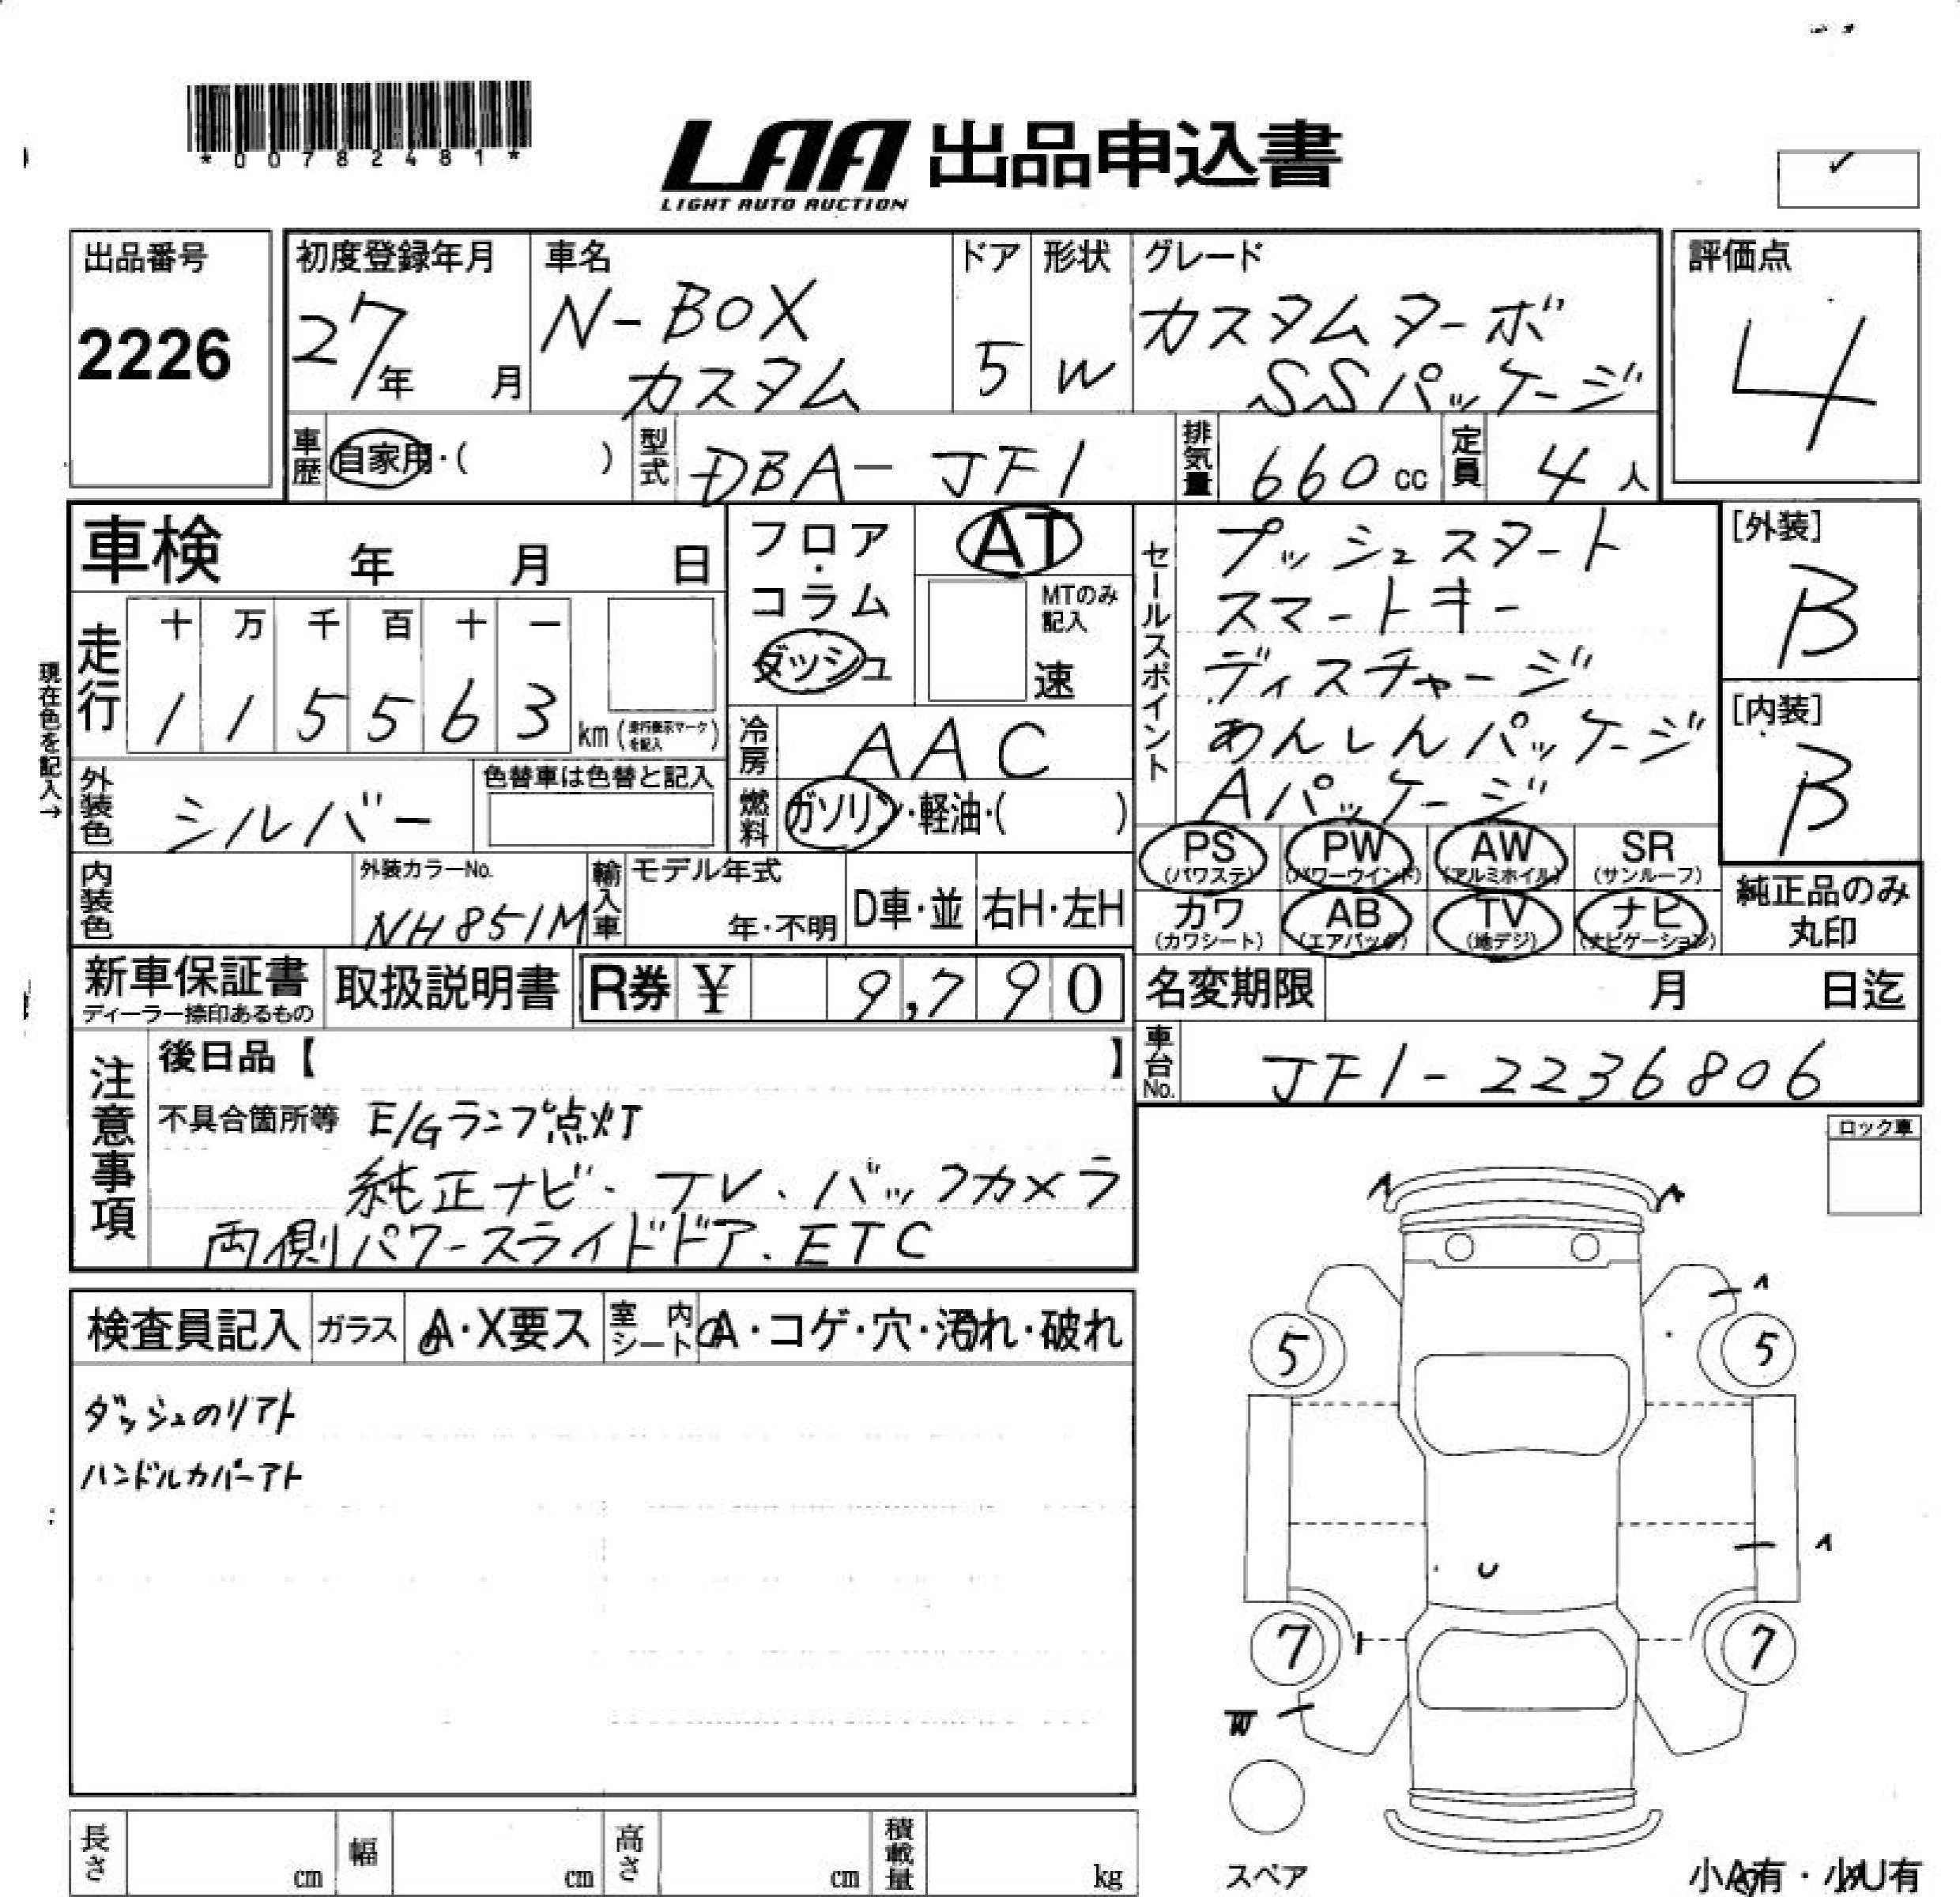 *00782481*
LAA 出品申込書
LIGHT AUTO AUCTION
出品番号
2226
初度登録年月
27年 月
車名
N-BOX
カスタム
ドア
5
形状
W
グレード
カスタムターボ
SSパッケージ
評価点
4
車歴 自家用・( )
型式 DBA-JF1
排気量 660 cc
定員 4 人
車検 年 月 日
フロア・コラム
ダッシュ
AT
MTのみ記入
速
セールスポイント
プッシュスタート
スマートキー
ディスチャージ
あんしんパッケージ
Aパッケージ
[外装]
B
[内装]
B
現在色を記入→
走行
十 万 千 百 十 一
1 1 5 5 6 3 km (走行表示マークを記入)
冷房 AAC
外装色 シルバー
色替車は色替と記入
燃料 ガソリン・軽油・( )
PS (パワステ)
PW (パワーウインド)
AW (アルミホイル)
SR (サンルーフ)
カワ (カワシート)
AB (エアバッグ)
TV (地デジ)
ナビ (ナビゲーション)
純正品のみ
丸印
内装色
外装カラーNo.
NH851M
輸入車
モデル年式
年・不明
D車・並
右H・左H
新車保証書
ディーラー捺印あるもの
取扱説明書
R券 ¥ 9,790
名変期限 月 日迄
車台No. JF1-2236806
注意事項
後日品【 】
不具合箇所等 E/Gランプ点灯
純正ナビ、TV、バックカメラ
両側パワースライドドア、ETC
ロック車
検査員記入
ガラス
A・X要ス
室内シート
A・コゲ・穴・汚れ・破れ
ダッシュのリアト
ハンドルカバーアト
5
5
U
7
7
W
スペア
長さ cm
幅 cm
高さ cm
積載量 kg
小A有・小U有